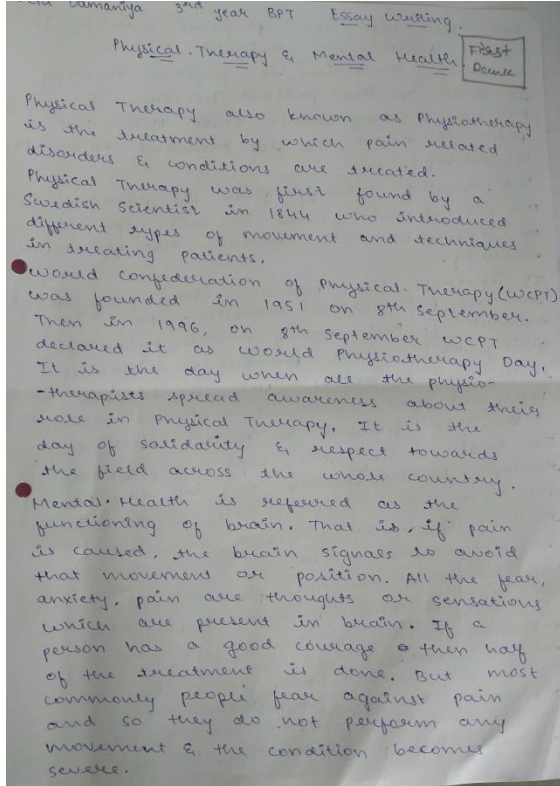 Damaniya 3rd year BPT Essay Writing.
Physical Therapy & Mental Health
First
Rank
Physical Therapy also known as Physiotherapy
is the treatment by which pain related
disorders & conditions are treated.
Physical Therapy was first found by a
Swedish Scientist in 1844 who introduced
different types of movement and techniques
in treating patients.
World confederation of Physical Therapy (WCPT)
was founded in 1951 on 8th September.
Then in 1996, on 8th September WCPT
declared it as World Physiotherapy Day.
It is the day when all the physio-
-therapists spread awareness about their
role in Physical Therapy. It is the
day of solidarity & respect towards
the field across the whole country.
Mental Health is referred as the
functioning of brain. That is, if pain
is caused, the brain signals to avoid
that movement or position. All the fear,
anxiety, pain are thoughts or sensations
which are present in brain. If a
person has a good courage then half
of the treatment is done. But most
commonly people fear against pain
and so they do not perform any
movement & the condition becomes
severe.